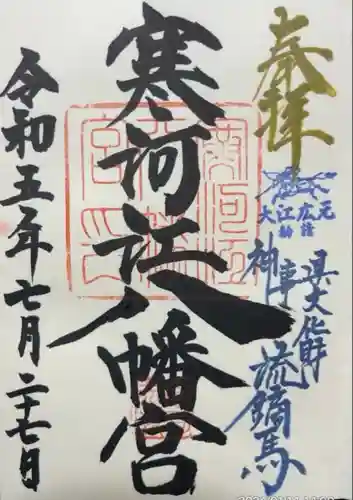 奉拝
大江広元
神事
流鏑馬
寒河江八幡宮
令和五年七月二十七日